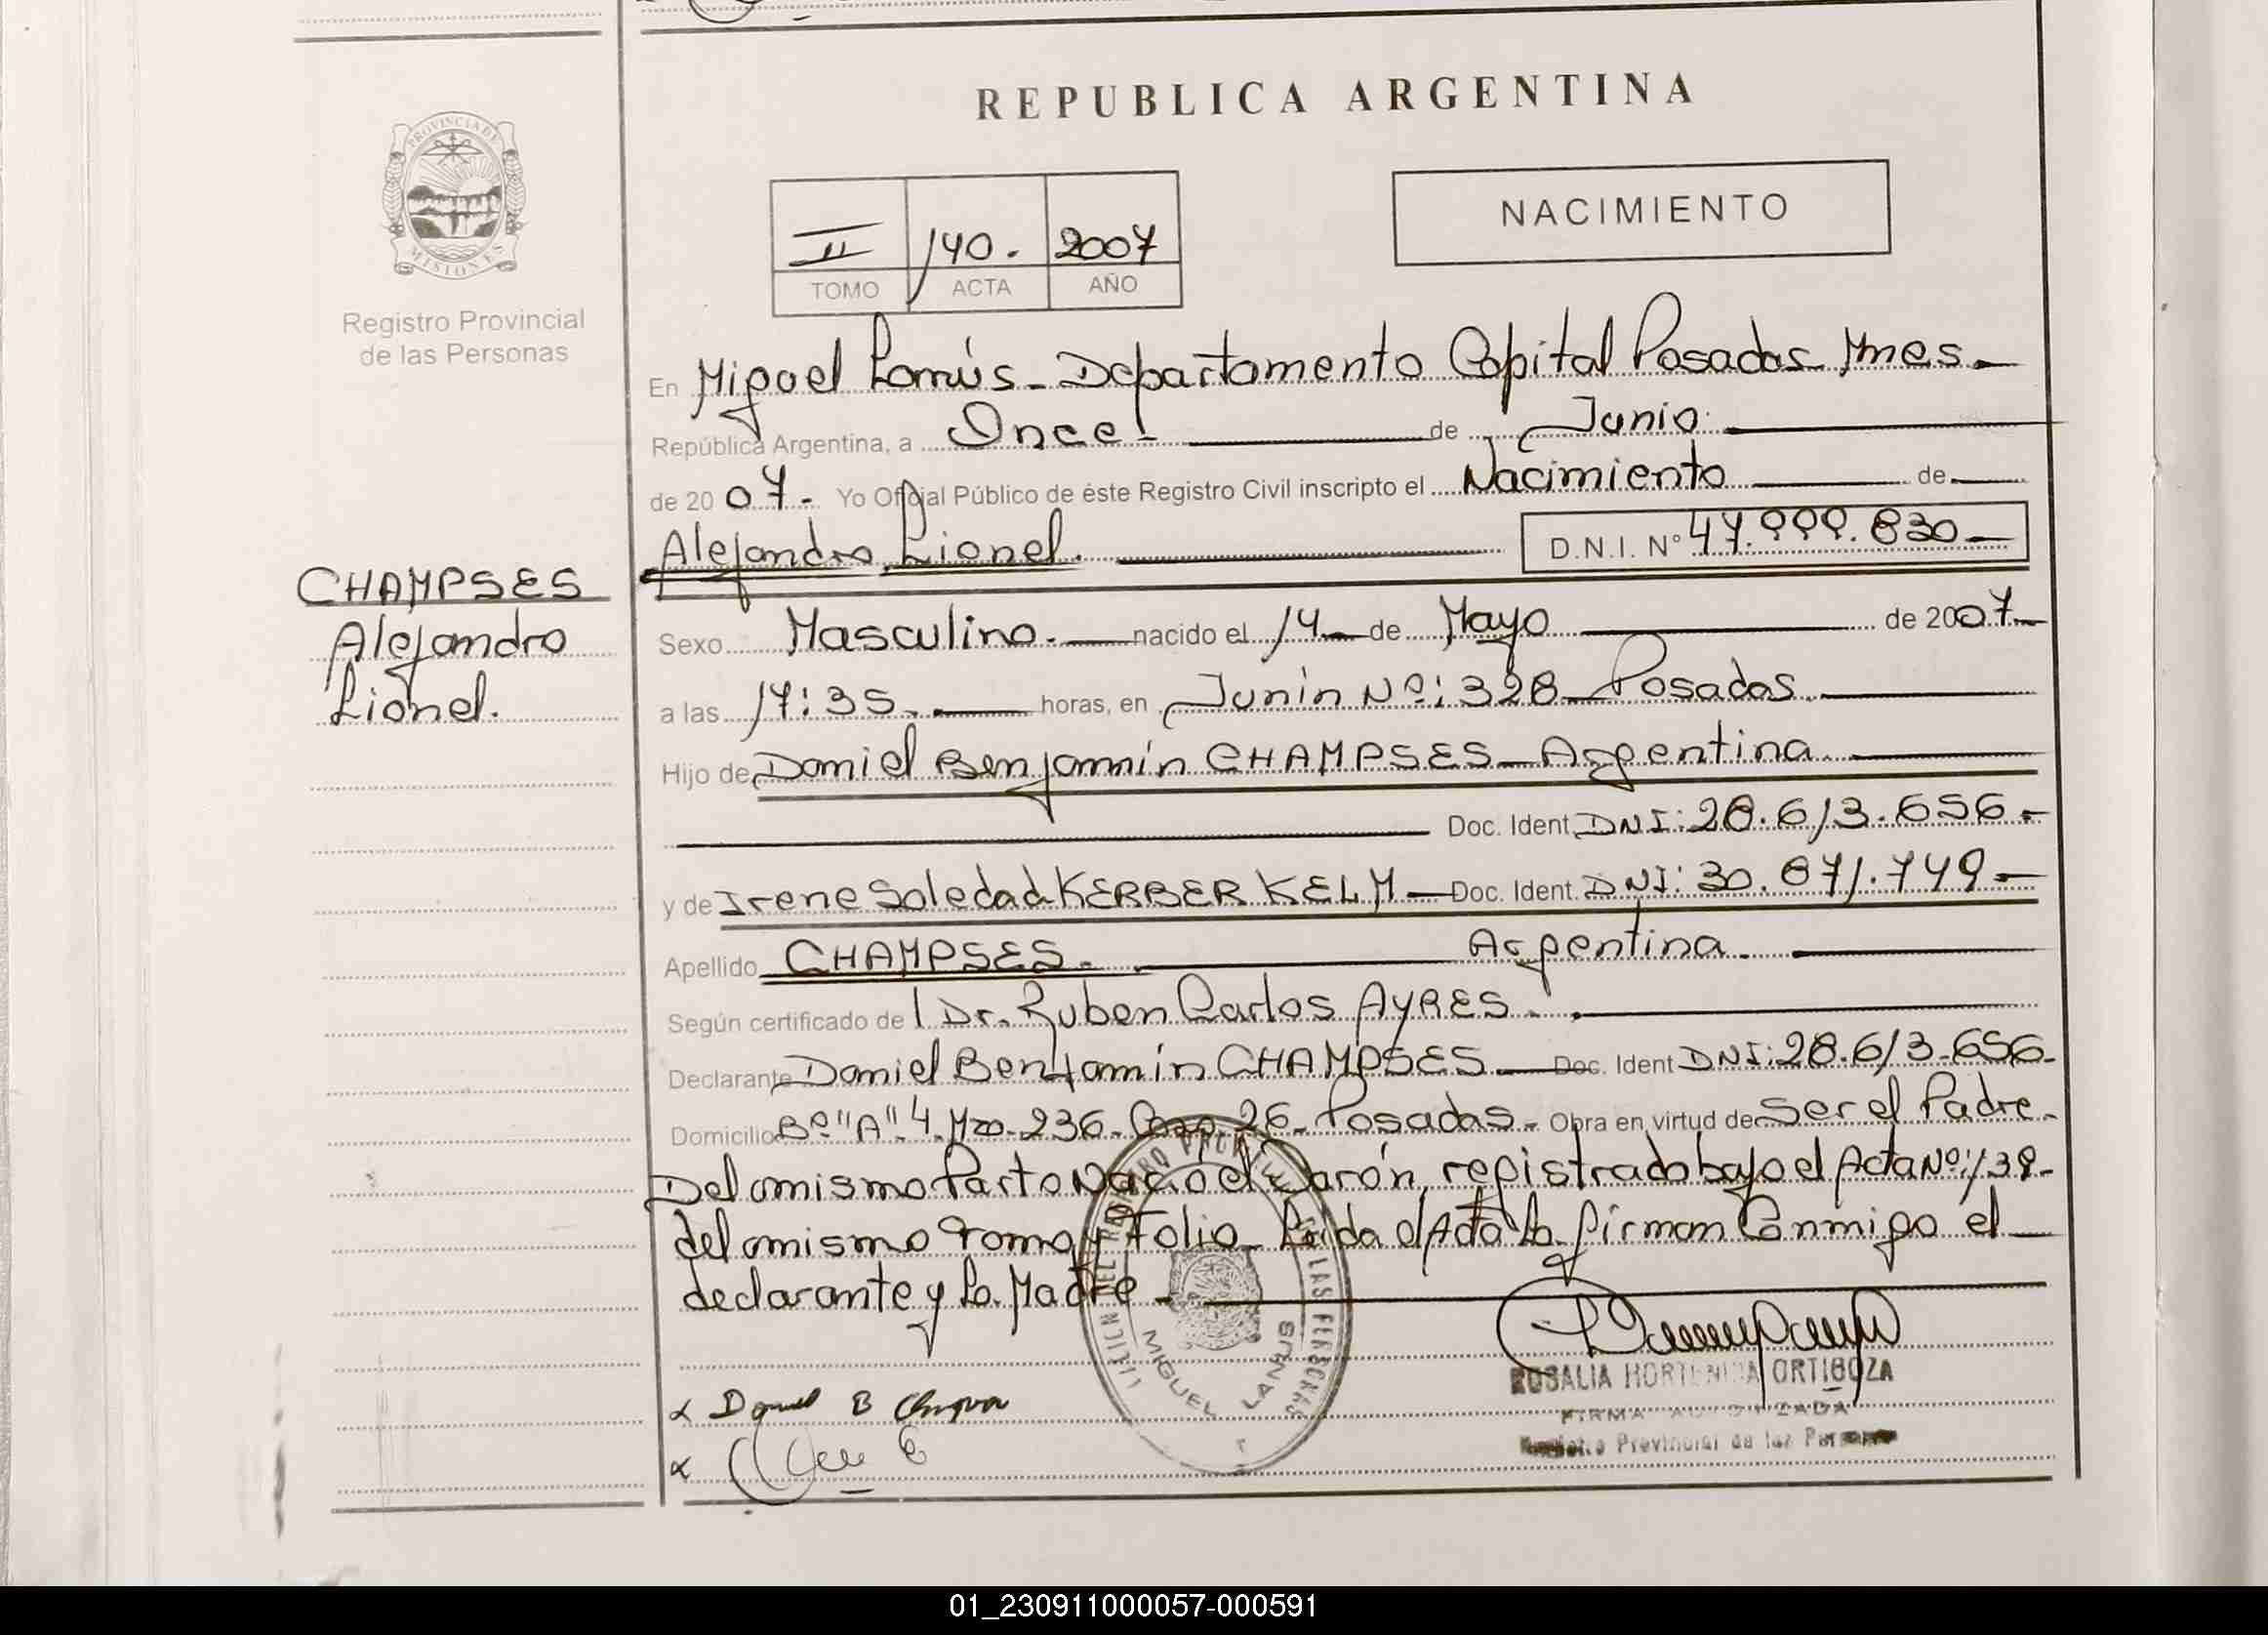 REPUBLICA ARGENTINA
PROVINCIA DE
MISIONES
Registro Provincial
de las Personas
II 140. 2007
TOMO ACTA AÑO
NACIMIENTO
En Miguel Lanús - Departamento Capital Posadas Mnes.
República Argentina, a Once. de Junio
de 2007. Yo Oficial Público de éste Registro Civil inscripto el Nacimiento de
Alejandro Lionel. D.N.I. Nº 47.999.830
CHAMPSES
Alejandro
Lionel.
Sexo Masculino. nacido el 14 de Mayo de 2007
a las 17:35. horas, en Junín Nº: 328 Posadas.
Hijo de Daniel Benjamín CHAMPSES - Argentina.
Doc. Ident. DNI: 28.613.656.
y de Irene Soledad KERBER KELM Doc. Ident. DNI: 30.871.749
Apellido CHAMPSES. Argentina.
Según certificado de l Dr. Ruben Carlos AYRES.
Declarante Daniel Benjamín CHAMPSES Doc. Ident DNI: 28.613.656
Domicilio Bº "A" 4. Mza. 236. Casa 26 - Posadas. Obra en virtud de Ser el Padre.
Del mismo Parto Nació el Varón, registrado bajo el Acta Nº: 139
del mismo Tomo y Folio - Leída el Acta la firman Conmigo el
declarante y la Madre
MIGUEL LANUS
DE LAS PERSONAS
ROSALIA HORTENSIA ORTIGOZA
FIRMA AUTORIZADA
Registro Provincial de las Personas
Daniel B
01_230911000057-000591